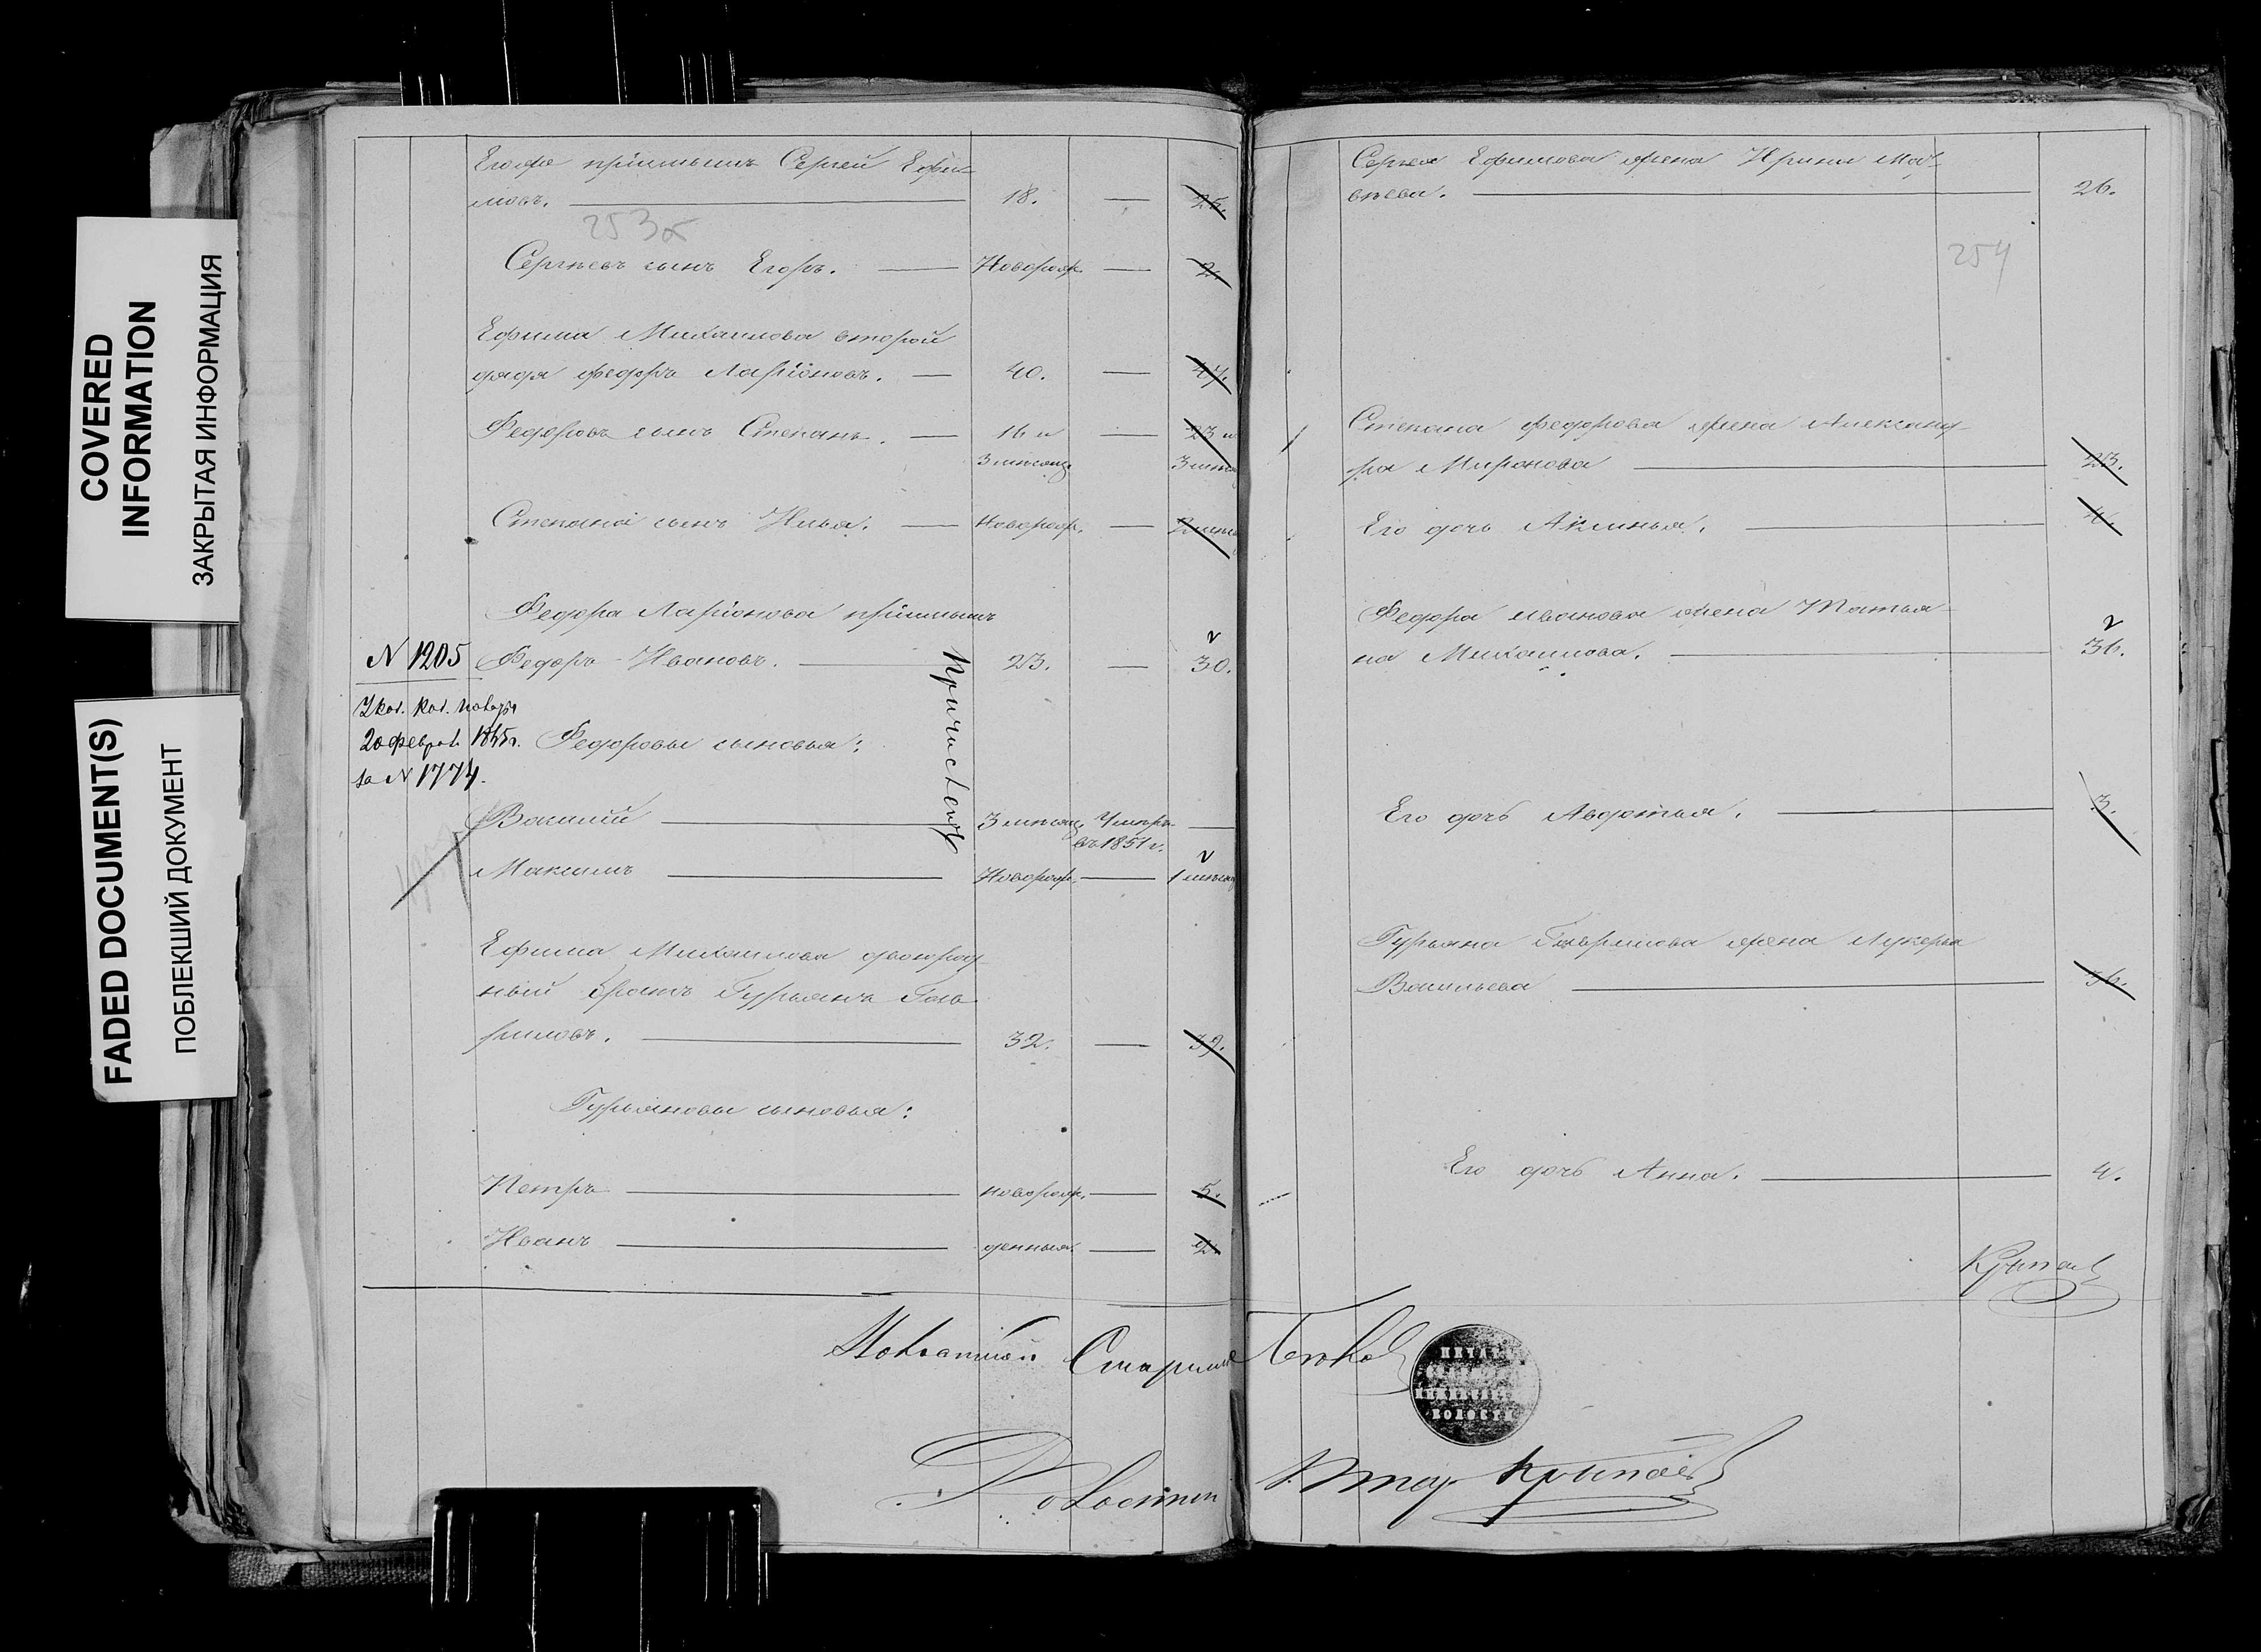 COVERED
INFORMATION
ЗАКРЫТАЯ ИНФОРМАЦИЯ
FADED DOCUMENT(S)
ПОБЛЕКШИЙ ДОКУМЕНТ
Егора пріимышъ Сергей Ефи-
мовъ. 18. — 25.
253об
Сергѣевъ сынъ Егоръ. —Новорож. — 2.
Ефима Михаилова второй
дядя Федоръ Ларіоновъ. — 40. — 47.
Федоровъ сынъ Степанъ. — 16 и — 23 и
3 мѣсяц. 3 мѣся
Степана сынъ Илья. — Новорож. —
Федора Ларіонова пріимышъ
N 1205 Федоръ Ивановъ. — 23. — 30.
Указ. Каз.
20 Феврал. Федоровы сыновья:
за N 1774.
Причисленъ
Василій — 3 мѣсяц. Умеръ —
въ 1851 г.
Максимъ — Новорож. — 1 мѣсяц
Ефима Михаилова двоюрод-
ный братъ Гурьянъ Гав-
риловъ. — 32. — 39.
Гурьяновы сыновья:
Петръ — новорож- — 5.
Иванъ — денныя. — 2.
Сергея Ефимова жена Ирина Мат-
вѣева. — 26.
254
Степана Федорова жена Александ-
ра Миронова — 23.
Его дочь Акилина. — 4.
Федора Иванова жена Татья-
на Михаилова. — 36.
Его дочь Авдотья. — 3.
Гурьяна Гаврилова жена Лукерья
Васильева — 36.
Его дочь Анна. — 4.
Волостной Старшина
ВОЛОСТИ
Волостной